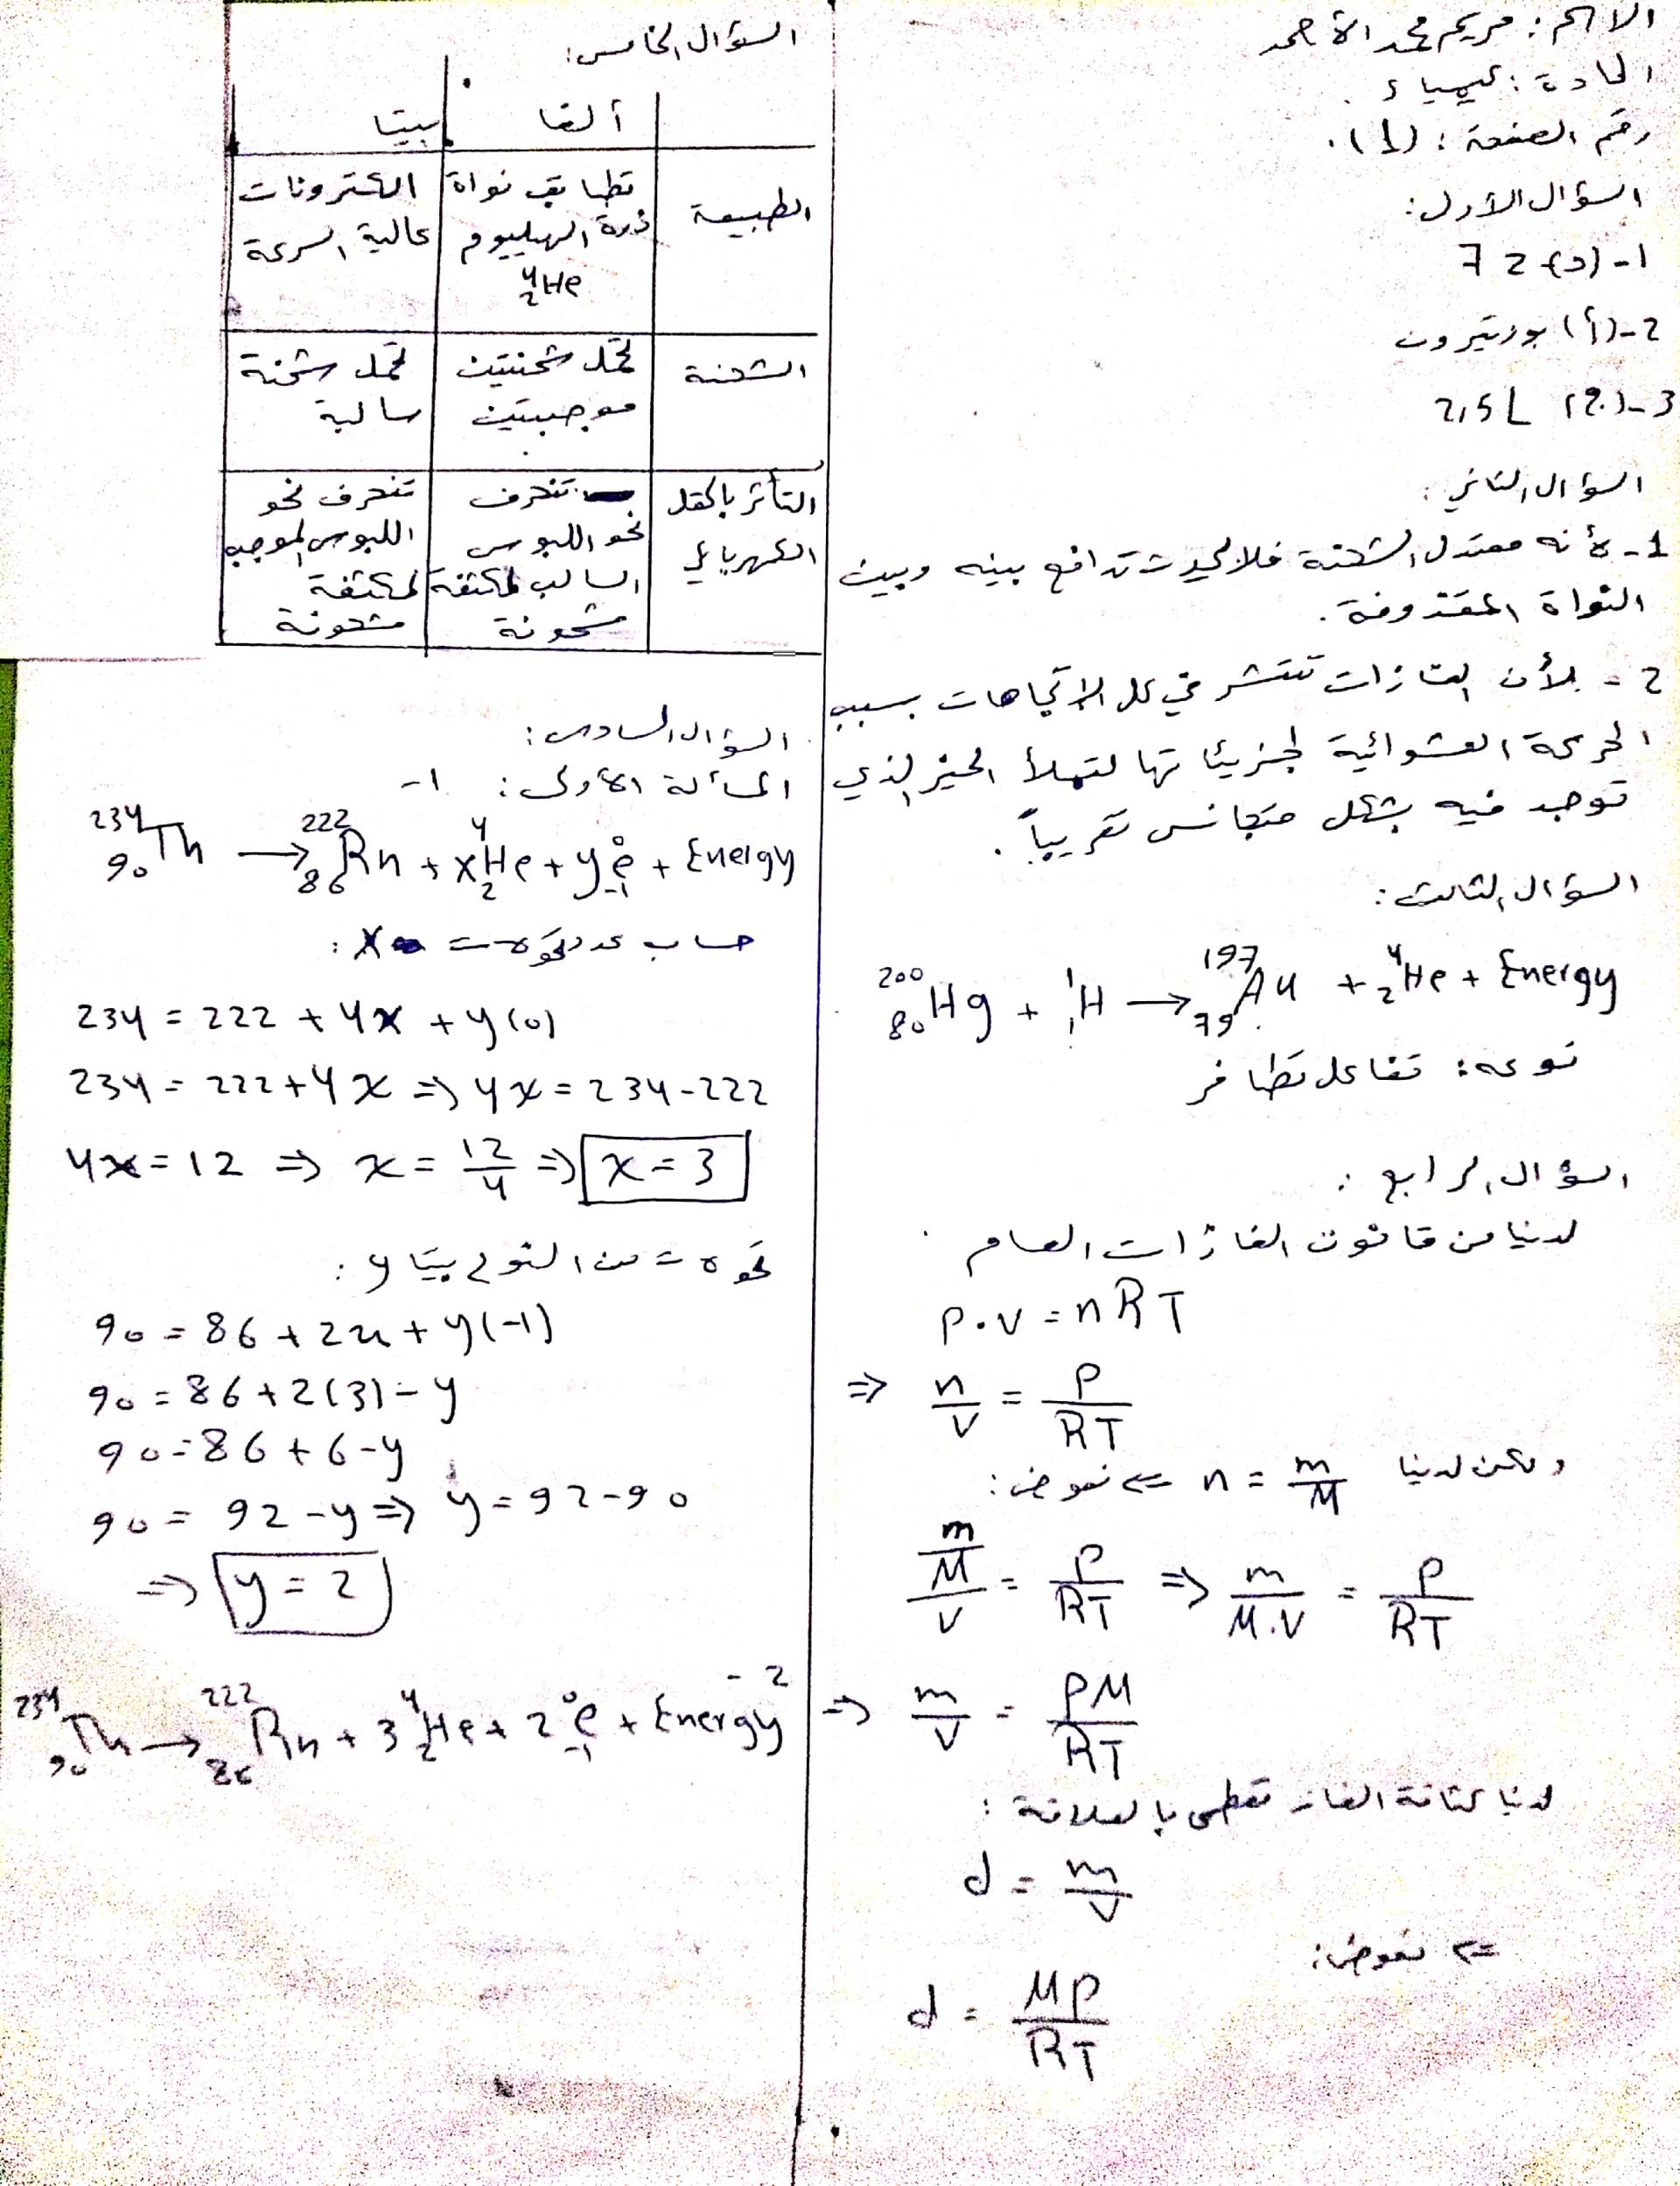 الاسم: مريم محمد الأحمد
المادة: كيمياء.
رقم الصفحة: (1).
السؤال الأول:
1-(د) 72
2-(أ) بوزيترون
3-(ج) 2,5 L
السؤال الثاني:
1- لأنه معتدل الشحنة فلا يحدث تدافع بينه وبين
النواة المقذوفة.
2- لأن الغازات تنتشر في كل الاتجاهات بسبب
الحركة العشوائية لجزيئاتها لتملأ الحيز الذي
توجد فيه بشكل متجانس تقريباً.
السؤال الثالث:
²⁰⁰₈₀Hg + ¹₁H → ¹⁹⁷₇₉Au + ⁴₂He + Energy
نوعه: تفاعل تطافر
السؤال الرابع:
لدينا من قانون الغازات العام
P.V = nRT
⇒ n/V = P/RT
ولكن لدينا n = m/M ⇐ نعوض:
(m/M)/V = P/RT ⇒ m/M.V = P/RT
⇒ m/V = PM/RT
لدينا كثافة الغاز تعطى بالعلاقة:
d = m/V
⇐ نعوض:
d = MP/RT
السؤال الخامس:
ألفا بيتا
الطبيعة
تطابق نواة
ذرة الهيليوم
⁴₂He
الكترونات
عالية السرعة
الشحنة
تحمل شحنتين
موجبتين
تحمل شحنة
سالبة
التأثر بالحقل
الكهربائي
تنحرف
نحو اللبوس
السالب لمكثفة
مشحونة
تنحرف نحو
اللبوس الموجب
لمكثفة
مشحونة
السؤال السادس:
المسألة الأولى: 1-
²³⁴₉₀Th → ²²²₈₆Rn + x⁴₂He + y⁰₋₁e + Energy
حساب عدد تحولات x:
234 = 222 + 4x + y(0)
234 = 222 + 4x ⇒ 4x = 234-222
4x = 12 ⇒ x = 12/4 ⇒ x = 3
تحولات من النوع بيتا y:
90 = 86 + 2x + y(-1)
90 = 86 + 2(3) - y
90 = 86 + 6 - y
90 = 92 - y ⇒ y = 92-90
⇒ y = 2
2 -
²³⁴₉₀Th → ²²²₈₆Rn + 3⁴₂He + 2⁰₋₁e + Energy